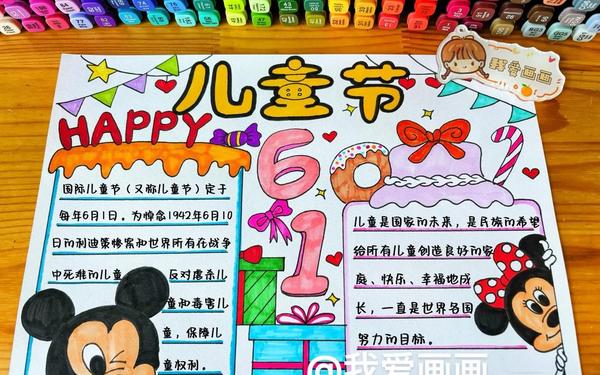 我爱画画
儿童节
HAPPY
61
国际儿童节(又称儿童节)定于
每年6月1日。为悼念1942年6月10
日的利迪策惨案和世界所有在战争
中死难的儿童 反对虐杀儿
童和毒害儿
童,保障儿
童权利。
儿童是国家的未来,是民族的希望
给所有儿童创造良好的家
庭、快乐、幸福地成
长,一直是世界各国
努力的目标。
@我爱画画